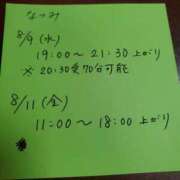 なつみ
8/9 (水)
19:00〜21:30 上がり
※ 20:30受70分可能
8/11 (金)
11:00〜18:00 上がり